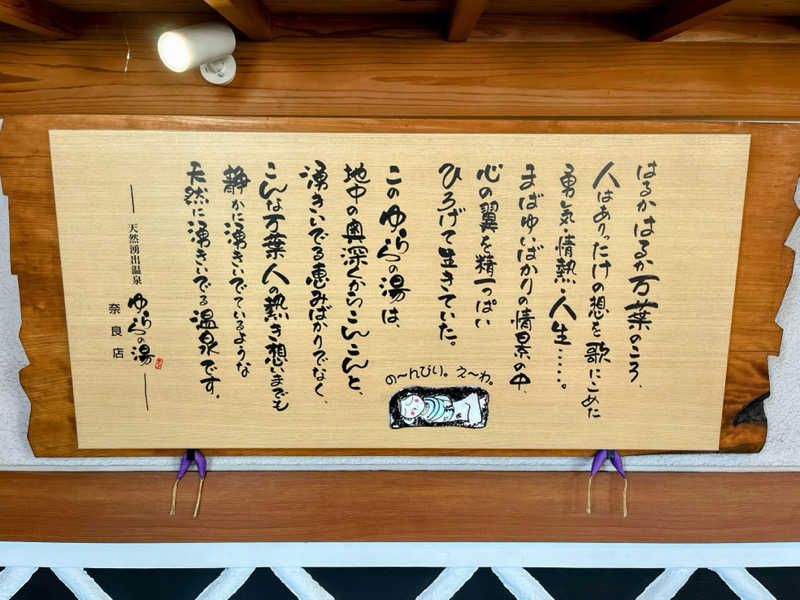 はるかはるか万葉のころ、
人はありったけの想を歌にこめた
勇気・情熱・人生……。
まばゆいばかりの情景の中、
心の翼を精一っぱい
ひろげて生きていた。
このゆららの湯は、
地中の奥深くからこんこんと、
湧きいでる恵みばかりでなく、
こんな万葉人の熱き想いまでも
静かに湧きいでているような
天然に湧きいでる温泉です。
の〜んびり。え〜わ。
天然湧出温泉
ゆららの湯
奈良店